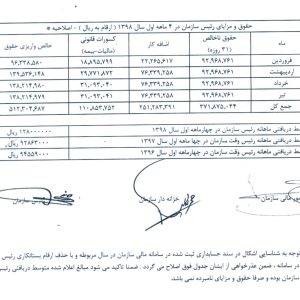 ( حقوق و مزایای رئیس سازمان در ۴ ماهه اول سال ۱۳۹۸ ( ارقام به ریال ) - اصلاحیه *
ماه حقوق ناخالص (۳۱ روزه) اضافه کار کسورات قانونی (مالیات-بیمه) خالص واریزی حقوق
فروردین ۹۲,۹۶۸,۷۶۱ ۲۲,۲۶۵,۶۱۷ ۱۸,۸۹۵,۷۹۹ ۹۶,۳۳۸,۵۸۰
اردیبهشت ۹۲,۹۶۸,۷۶۱ ۷۶,۳۳۹,۲۵۸ ۲۹,۷۷۱,۸۷۲ ۱۳۹,۵۳۶,۱۴۸
خرداد ۹۲,۹۶۸,۷۶۱ ۷۶,۳۳۹,۲۵۸ ۳۱,۰۹۳,۰۴۰ ۱۳۸,۲۱۴,۹۸۰
تیر ۹۲,۹۶۸,۷۶۱ ۷۶,۳۳۹,۲۵۸ ۳۱,۰۹۳,۰۴۰ ۱۳۸,۲۱۴,۹۸۰
جمع کل ۳۷۱,۸۷۵,۰۴۴ ۲۵۱,۲۸۳,۳۹۱ ۱۱۰,۸۵۳,۷۵۲ ۵۱۲,۳۰۴,۶۸۷
دریافتی ماهانه رئیس سازمان در چهارماهه اول سال ۱۳۹۸ ۱۲۸۰۰۰۰۰۰ ریال
دریافتی ماهانه رئیس وقت سازمان در چها ماهه اول سال ۱۳۹۷ ۹۲۸۶۳۰۰۰ ریال
دریافتی ماهانه رئیس وقت سازمان در چهارماهه اول سال ۱۳۹۶ ۹۴۵۵۹۰۰۰ ریال
سازمان خزانه دار سازمان
توجه به شناسایی اشکال در سند حسابداری ثبت شده در سامانه مالی سازمان در سال مربوطه و با حذف ارقام بستانکاری رئیس
سامانه ، ضمن عذرخواهی از ایشان جدول فوق اصلاح می گردد . ضمنا تاکید می شود مبالغ اعلام شده متوسط دریافتی رئیس
سازمان بوده و صرفا حقوق و مزایای نامبرده نمی باشد.